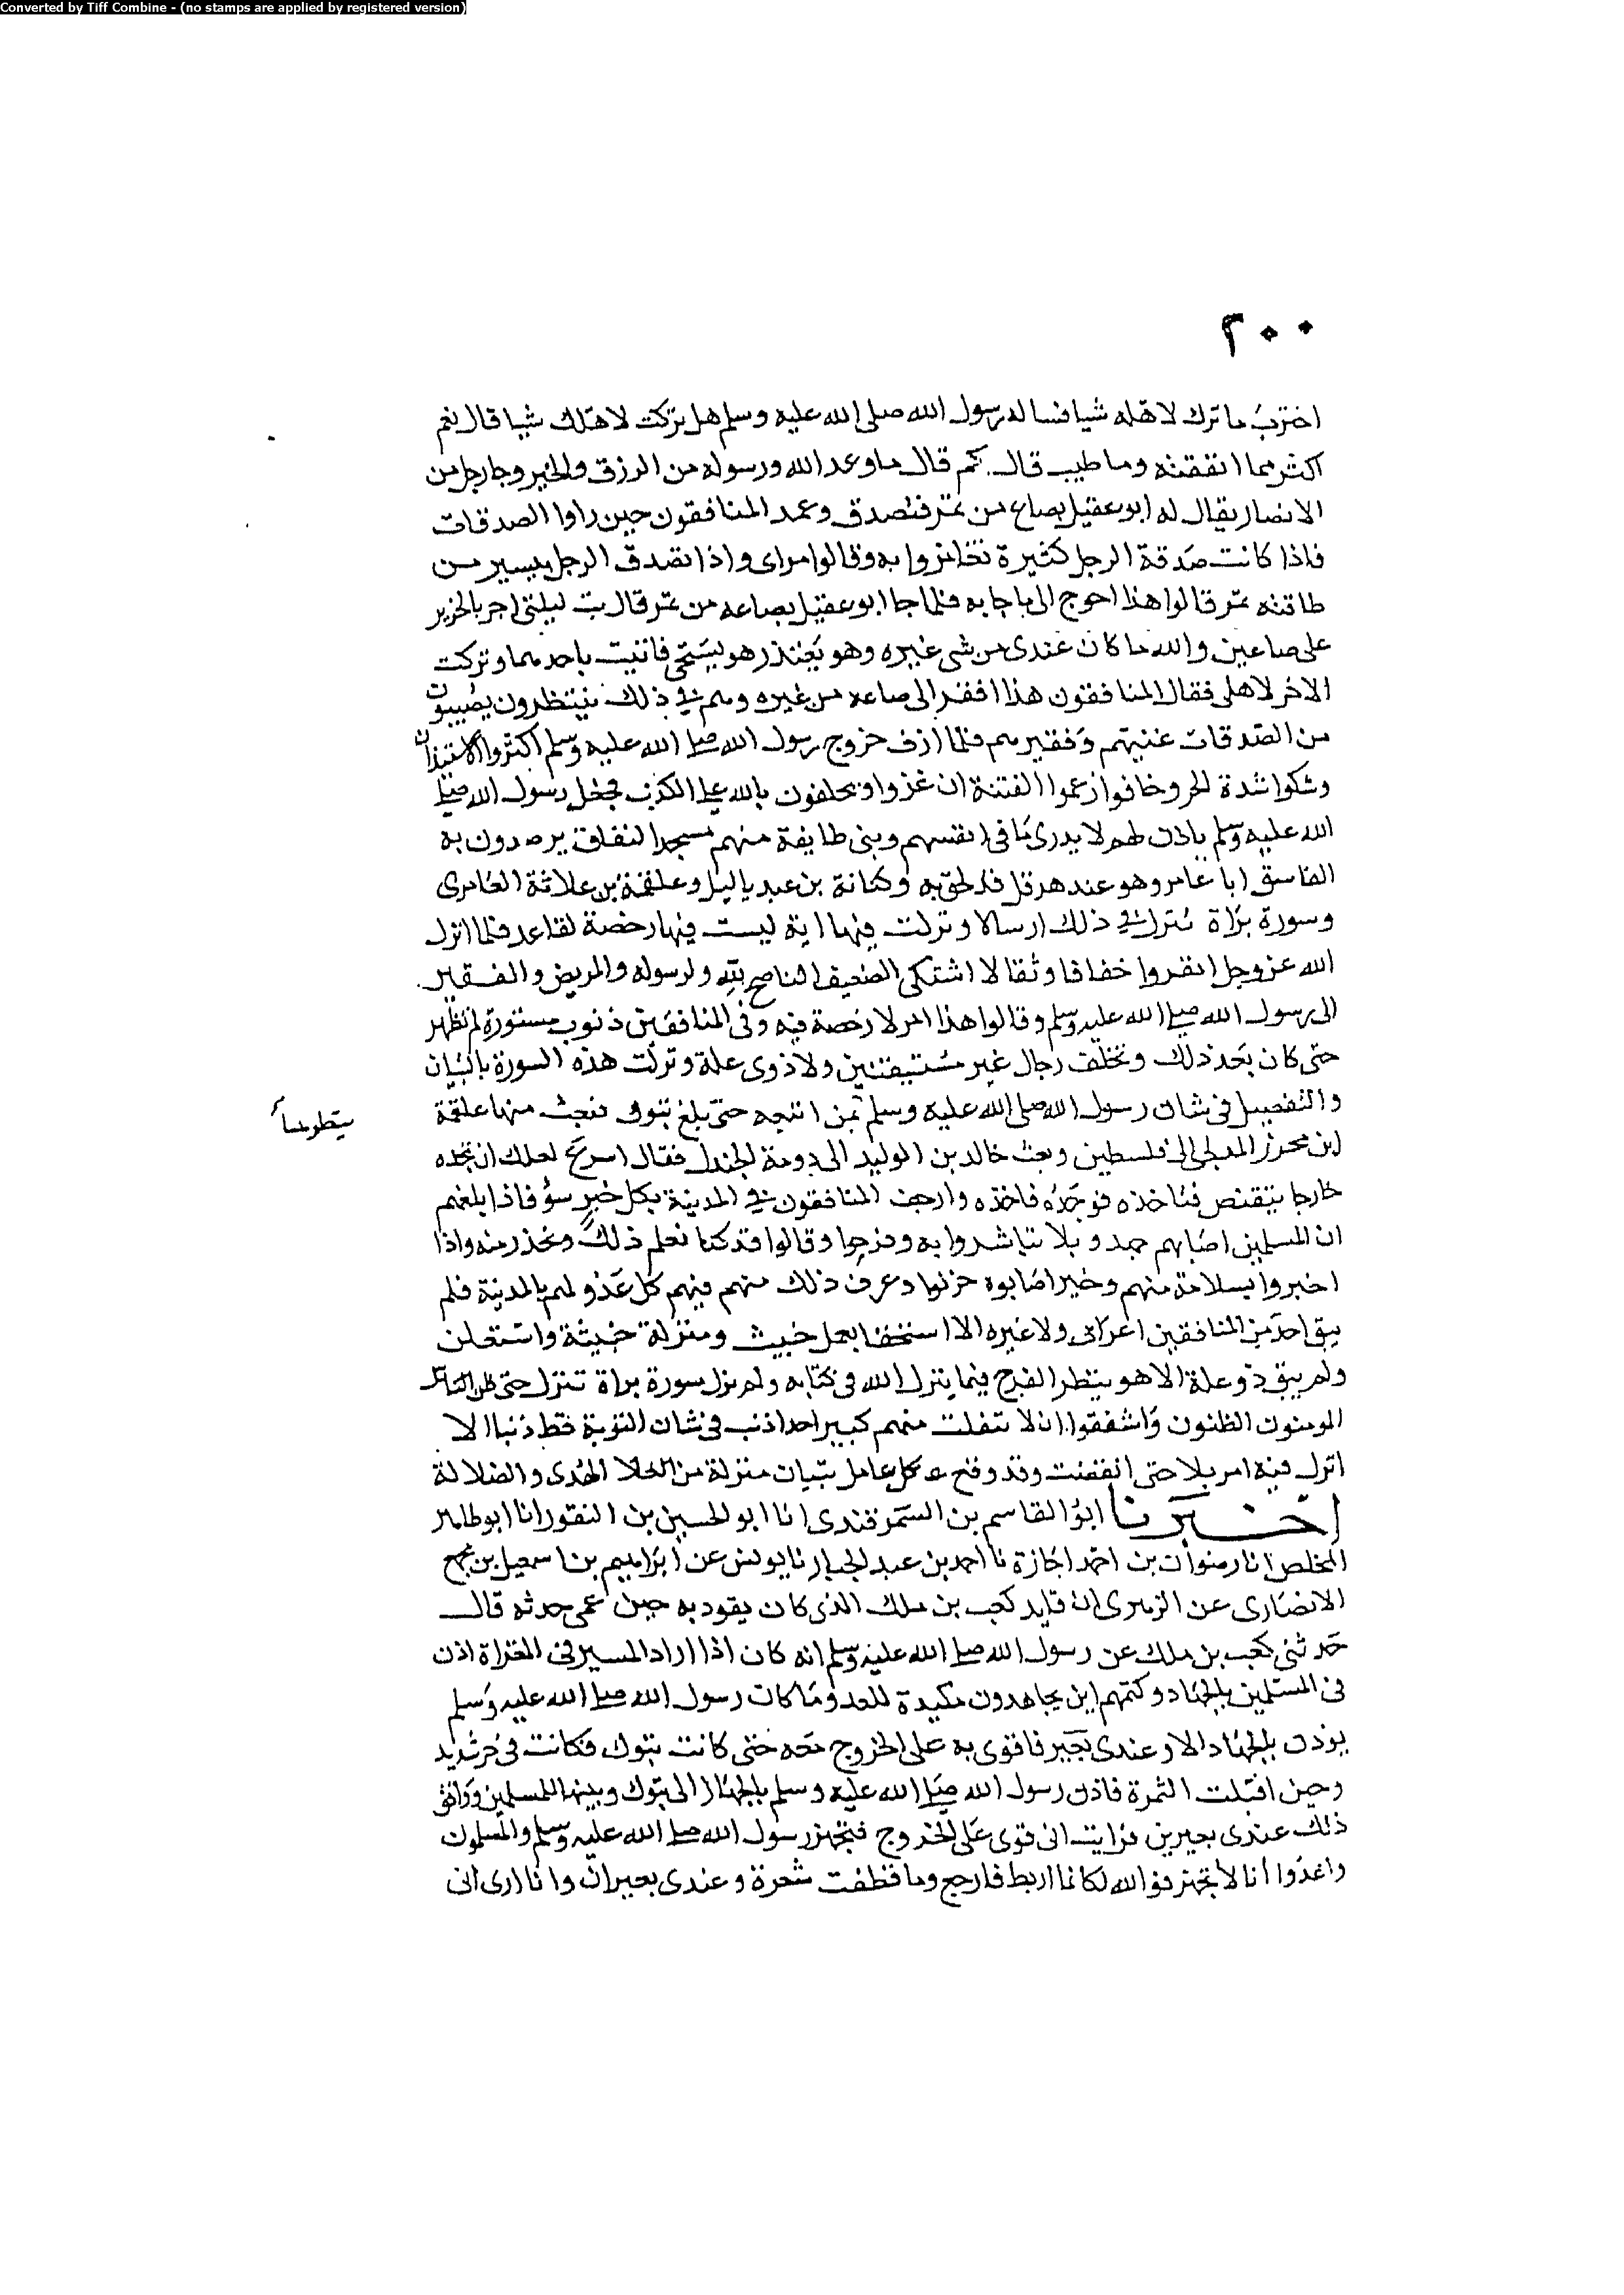 Converted by Tiff Combine - (no stamps are applied by registered version)
٢٠٠
اخترت ما ترك لاهله شيا فساله رسول الله صلى الله عليه وسلم هل تركت لاهلك شيا قال نعم
اكثر مما انفقته وما طيب قال كم قال ما وعد الله ورسوله من الرزق والخير وجا رجل من
الانصار يقال له ابو عقيل بصاع من تمر فتصدق وعمد المنافقون حين راوا الصدقات
فاذا كانت صدقة الرجل كثيرة تغامزوا به وقالوا مراى واذا تصدق الرجل بيسير من
طاقته تمر قالوا هذا احوج الى ما جا به فلما جا ابو عقيل بصاعه من تمر قال بت ليلتي اجر بالجرير
على صاعين والله ما كان عندى من شى غيره وهو يعتذر وهو يستحى فاتيت باحدهما وتركت
الاخر لاهلى فقال المنافقون هذا افقر الى صاعه من غيره وهم فى ذلك ينتظرون يصيبون
من الصدقات غنيهم وفقيرهم فلما ازف خروج رسول الله صلى الله عليه وسلم اكثروا الاستيذان
وشكوا شدة الحر وخافوا زعموا الفتنة ان غزوا ويحلفون بالله على الكذب فجعل رسول الله صلى
الله عليه وسلم ياذن لهم لا يدرى ما فى انفسهم وبنى طايفة منهم مسجد النفاق يرصدون به
الفاسق ابا عامر وهو عند هرقل قد لحق به وكنانة بن عبد ياليل وعلقمة بن علاثة العامرى
وسورة براة تنزل فى ذلك ارسالا ونزلت فيها اية ليست فيها رخصة لقاعد فلما انزل
الله عز وجل انفروا خفافا وثقالا اشتكى الضعيف الناصح لله ولرسوله والمريض والفقير
الى رسول الله صلى الله عليه وسلم وقالوا هذا امر لا رخصة فيه وفى المنافقين ذنوب مستورة لم تظهر
حتى كان بعد ذلك وتخلف رجال غير مستيقنين ولا ذوى علة ونزلت هذه السورة بالبيان
والتفصيل فى شان رسول الله صلى الله عليه وسلم بمن اتبعه حتى بلغ تبوك فبعث منها علقمة
ابن محرز المدلجى الى فلسطين وبعث خالد بن الوليد الى دومة الجندل فقال اسرع لعلك ان تجده
خارجا يتقنص فتاخذه فوجده فاخذه وارجف المنافقون فى المدينة بكل خبر سؤ فاذا بلغهم
ان المسلمين اصابهم جهد وبلا تباشروا به وفرحوا وقالوا قد كنا نعلم ذلك ونحذر منه واذا
اخبروا بسلامة منهم وخير اصابوه حزنوا وعرف ذلك منهم فيهم كل عدو لهم بالمدينة فلم
يبق احد من المنافقين اعرابى ولا غيره الا استخفا بعمل خبيث ومنزلة خبيثة واستعلن
ولم يبق ذو علة الا هو ينتظر الفرج فيما ينزل الله فى كتابه ولم تزل سورة براة تنزل حتى ظن
المومنون الظنون واشفقوا ان لا تنفلت منهم كبير احد اذنب فى شان التوبة قط ذنبا الا
انزل فيه امر بلا حتى انقضت وقد وقع كل عامل تبيان منزلة من الهدى والضلالة
اخبرنا ابو القاسم بن السمرقندى انا ابو الحسين بن النقور انا ابو طاهر
المخلص انا رضوان بن احمد اجازة نا احمد بن عبد الجبار نا يونس عن ابراهيم بن اسمعيل بن مجمع
الانصارى عن الزهرى ان قايد كعب بن ملك الذى كان يقود به حين عمى حدثه قال
حدثنى كعب بن ملك عن رسول الله صلى الله عليه وسلم انه كان اذا اراد المسير فى الغزاة اذن
فى المسلمين بالجهاد وكتمهم اين يجاهدون مكيدة للعدو وما كان رسول الله صلى الله عليه وسلم
يوذن بالجهاد الا وعندى بعير فاقوى به على الخروج معه حتى كانت تبوك فكانت فى حر شديد
وحين اقبلت الثمرة فاذن رسول الله صلى الله عليه وسلم بالجهاز الى تبوك وبينها للمسلمين ووافق
ذلك عندى بعيرين فرايت انى قوى على الخروج فتجهز رسول الله صلى الله عليه وسلم والمسلمون
واغدوا انا لا تجهز فوالله لكانما اربط فارجع وما قطفت شعرة وعندى بعيران وانا ارى انى